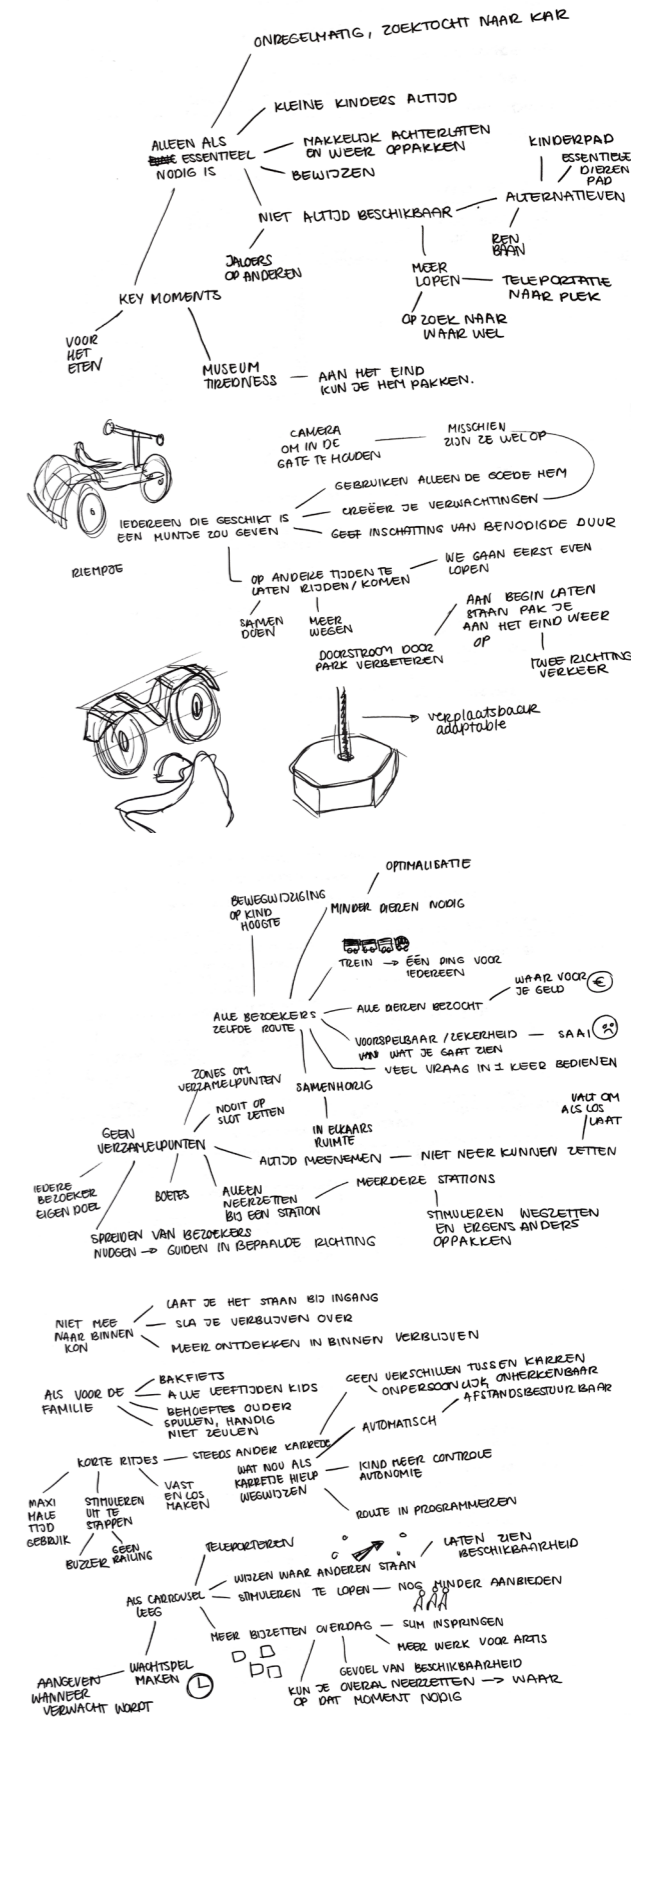 ONREGELMATIG, ZOEKTOCHT NAAR KAR
KLEINE KINDERS ALTIJD
ALLEEN ALS
ESSENTIEEL
NODIG IS
MAKKELIJK ACHTERLATEN
EN WEER OPPAKKEN
BEWIJZEN
KINDERPAD
ESSENTIELE
DIEREN
PAD
ALTERNATIEVEN
NIET ALTIJD BESCHIKBAAR
REN
BAAN
JALOERS
OP ANDEREN
MEER
LOPEN
TELEPORTATIE
NAAR PLEK
KEY MOMENTS
OP ZOEK NAAR
WAAR WEL
VOOR
HET
ETEN
MUSEUM
TIREDNESS
AAN HET EIND
KUN JE HEM PAKKEN.
CAMERA
OM IN DE
GATE TE HOUDEN
MISSCHIEN
ZIJN ZE WEL OP
GEBRUIKEN ALLEEN DE GOEDE HEM
CREËER JE VERWACHTINGEN
IEDEREEN DIE GESCHIKT IS
EEN MUNTJE ZOU GEVEN
GEEF INSCHATTING VAN BENODIGDE DUUR
RIEMPJE
OP ANDERE TIJDEN TE
LATEN RIJDEN/KOMEN
WE GAAN EERST EVEN
LOPEN
SAMEN
DOEN
MEER
WEGEN
AAN BEGIN LATEN
STAAN PAK JE
AAN HET EIND WEER
OP
DOORSTROOM DOOR
PARK VERBETEREN
TWEE RICHTING
VERKEER
verplaatsbaar
adaptable
OPTIMALISATIE
BEWEGWIJZIGING
OP KIND
HOOGTE
MINDER DIEREN NODIG
TREIN → ÉÉN DING VOOR
IEDEREEN
WAAR VOOR
JE GELD €
ALLE BEZOEKERS
ZELFDE ROUTE
ALLE DIEREN BEZOCHT
VOORSPELBAAR/ZEKERHEID — SAAI
VAN WAT JE GAAT ZIEN
VEEL VRAAG IN 1 KEER BEDIENEN
ZONES OM
VERZAMELPUNTEN
SAMENHORIG
NOOIT OP
SLOT ZETTEN
IN ELKAARS
RUIMTE
VALT OM
ALS LOS
LAAT
GEEN
VERZAMELPUNTEN
ALTIJD MEENEMEN — NIET NEER KUNNEN ZETTEN
IEDERE
BEZOEKER
EIGEN DOEL
BOETES
ALLEEN
NEERZETTEN
BIJ EEN STATION
MEERDERE STATIONS
STIMULEREN WEGZETTEN
EN ERGENS ANDERS
OPPAKKEN
SPREIDEN VAN BEZOEKERS
NUDGEN → GUIDEN IN BEPAALDE RICHTING
LAAT JE HET STAAN BIJ INGANG
NIET MEE
NAAR BINNEN
KON
SLA JE VERBLIJVEN OVER
MEER ONTDEKKEN IN BINNEN VERBLIJVEN
BAKFIETS
ALS VOOR DE
FAMILIE
ALLE LEEFTIJDEN KIDS
BEHOEFTES OUDER
SPULLEN, HANDIG
NIET ZEULEN
GEEN VERSCHILLEN TUSSEN KARREN
ONPERSOONLIJK, ONHERKENBAAR
AFSTANDSBESTUURBAAR
AUTOMATISCH
KORTE RITJES — STEEDS ANDER KARRETJE
WAT NOU ALS
KARRETJE HIELP
WEGWIJZEN
KIND MEER CONTROLE
AUTONOMIE
ROUTE IN PROGRAMMEREN
MAXI
MALE
TIJD
GEBRUIK
STIMULEREN
UIT TE
STAPPEN
VAST
EN LOS
MAKEN
BUZZER
GEEN
RAILING
TELEPORTEREN
LATEN ZIEN
BESCHIKBAARHEID
ALS CARROUSEL
LEEG
WIJZEN WAAR ANDEREN STAAN
STIMULEREN TE LOPEN — NOG MINDER AANBIEDEN
MEER BIJZETTEN OVERDAG — SLIM INSPRINGEN
MEER WERK VOOR ARTIS
GEVOEL VAN BESCHIKBAARHEID
KUN JE OVERAL NEERZETTEN → WAAR
OP DAT MOMENT NODIG
WACHTSPEL
MAKEN
AANGEVEN
WANNEER
VERWACHT WORDT